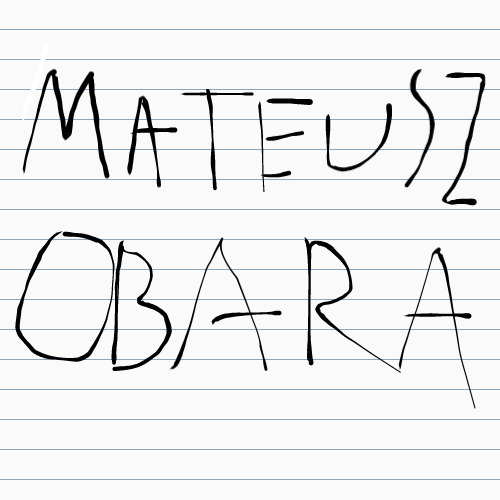 MATEUSZ
OBARA